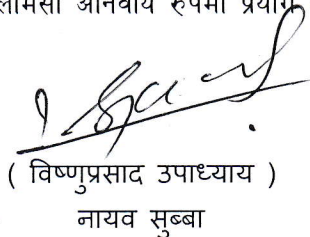 अनिवार्य रुपमा प्रयोग
( विष्णुप्रसाद उपाध्याय )
नायव सुब्बा